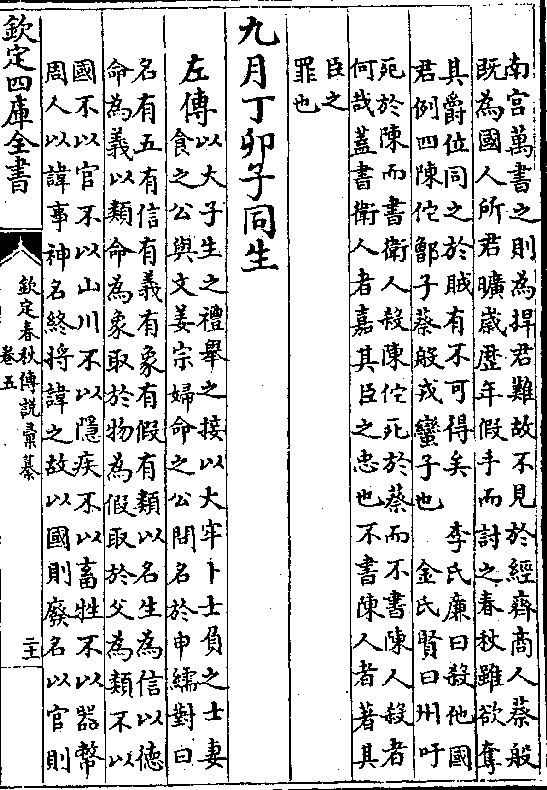 南宫萬書之則為捍君難故不見於經齊商人蔡般
既為國人所君曠歲歷年假手而討之春秋雖欲奪
其爵位同之於賊有不可得矣　李氏廉曰殺他國
君例四陳佗鄫子蔡般戎蠻子也　金氏賢曰州吁
死於陳而書衛人殺陳佗死於蔡而不書陳人殺者
何哉蓋書衛人者嘉其臣之忠也不書陳人者著其
臣之
罪也
九月丁卯子同生
左傳
以大子生之禮舉之接以大牢卜士負之士妻
食之公與文姜宗婦命之公問名於申繻對曰
名有五有信有義有象有假有類以名生為信以德
命為義以類命為象取於物為假取於父為類不以
國不以官不以山川不以隱疾不以畜牲不以器幣
周人以諱事神名終將諱之故以國則廢名以官則
欽定四庫全書
欽定春秋傳說彙纂
卷五